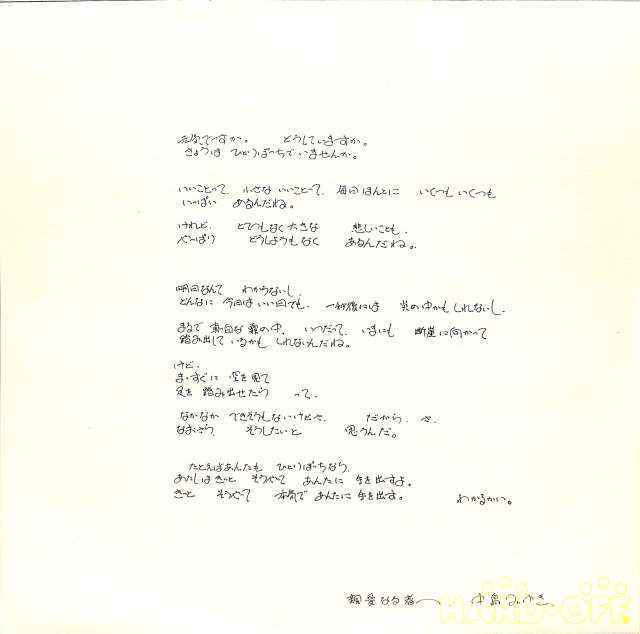 元気ですか。 どうしていますか。
きょうは ひとりぼっちでいませんか。
いいことって、小さな いいことって、毎日 ほんとに いくつも いくつも
いっぱい あるんだね。
けれど、 とてつもなく大きな 悲しいことも、
やっぱり どうしようもなく あるんだね。
明日なんて わからないし、
どんなに 今日は いい日でも、 一秒後には 炎の中かもしれないし、
まるで 真白な 霧の中、 いつだって、 いまにも 断崖に向かって
踏み出して いるかも しれないんだね。
けど、
まっすぐに 空を見て
足を 踏み出せたら って、
なかなか できそうもないけどさ、 だから、さ、
なおさら、 そうしたいと 思うんだ。
たとえばあんたも ひとりぼっちなら、
あたしは きっと そうやって あんたに 手を出すよ。
きっと そうやって 本気で あんたに 手を出す。 わかるかい。
親愛なる者へ 中島みゆき
HARD·OFF